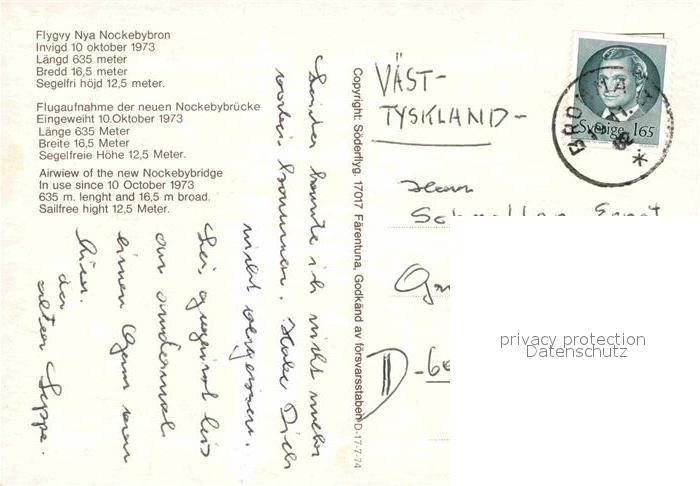 Flygvy Nya Nockebybron
Invigd 10 oktober 1973
Längd 635 meter
Bredd 16,5 meter
Segelfri höjd 12,5 meter.
Flugaufnahme der neuen Nockebybrücke
Eingeweiht 10.Oktober 1973
Länge 635 Meter
Breite 16,5 Meter
Segelfreie Höhe 12,5 Meter.
Airwiew of the new Nockebybridge
In use since 10 October 1973
635 m. lenght and 16,5 m broad.
Sailfree hight 12,5 Meter.
Leider konnte ich nicht mehr
vorbei kommen. Habe Dich
nicht vergessen.
Sei gegrüsst bis
ein andermal
einen
der
alter Seppe.
Copyright: Söderflyg. 17017 Färentuna, Godkänd av försvarsstaben D-17-7-74
VÄST-
TYSKLAND-
BROMMA
Sverige 165
Herrn
Ernst
D-
privacy protection
Datenschutz